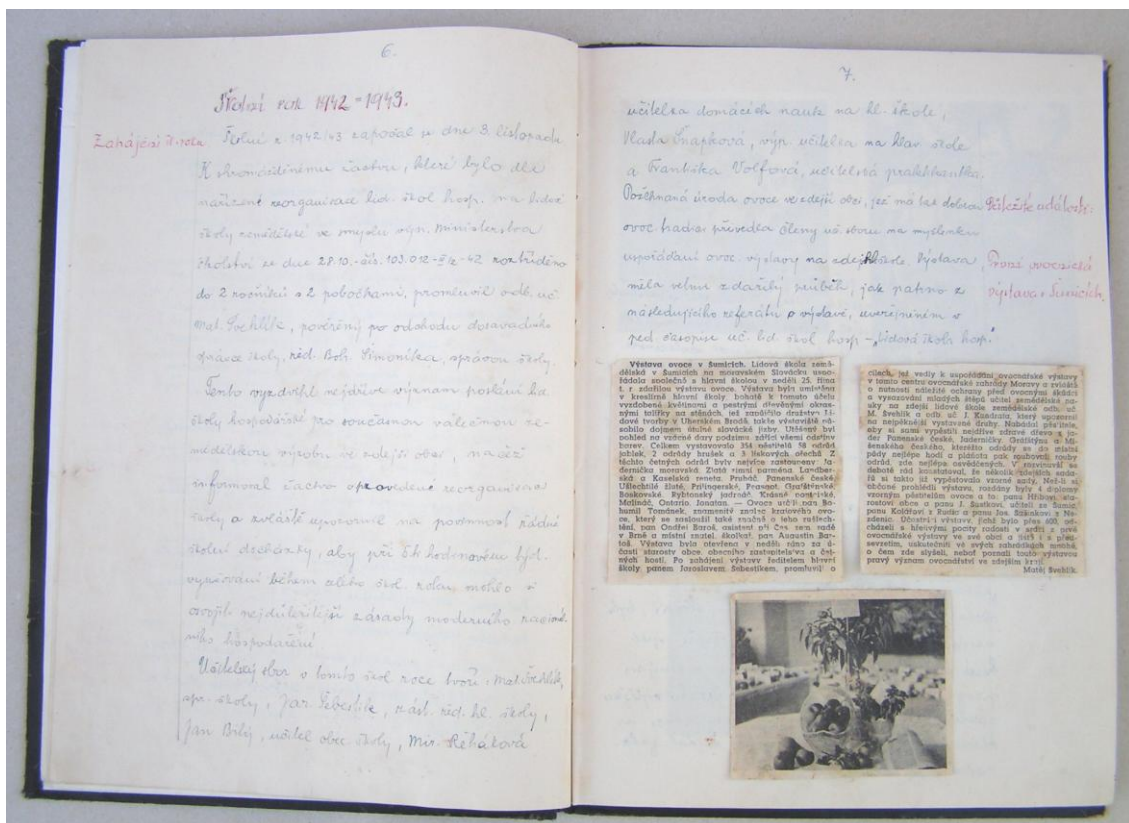 6.
Školní rok 1942-1943.
Zahájení šk. roku
Školní r. 1942/43 započal se dne 3. listopadu
K shromážděnému žactvu, které bylo dle
nařízené reorganisace lid. škol hosp. na lidové
školy zemědělské ve smyslu výn. ministerstva
školství ze dne 28.10. - čís. 103.012 - 42 roztříděno
do 2 ročníků s 2 pobočkami, promluvil odb. uč.
Mat. Švehlík, pověřený po odchodu dosavadního
správce školy, řed. Boh. Šimoníka, správou školy.
Tento vyzdvihl nejdříve význam poslání lid.
školy hospodářské pro současnou válečnou ze-
mědělskou výrobu ve zdejší obci, načež
informoval žactvo o provedené reorganisaci
školy a zvláště upozornil na povinnost řádné
školní docházky, aby při 5 hodinovém týd.
vyučování během celého škol. roku mohlo si
osvojit nejdůležitější zásady moderního racionál-
ního hospodaření
Učitelský sbor v tomto škol. roce tvoří: Mat. Švehlík,
spr. školy, Jar. Šebestík, zást. řed. hl. školy,
Jan Bílý, učitel obec. školy, Mir. Řeháková
7.
učitelka domácích nauk na hl. škole,
Vlasta Šnapková, výp. učitelka na hlav. škole
a Františka Volfová, učitelská praktikantka.
Požehnaná úroda ovoce ve zdejší obci, jež má tak dobrou
Důležité události:
ovoc. tradici přivedla členy uč. sboru na myšlenku
uspořádání ovoc. výstavy na zdejší hl. škole. Výstava
První ovocnická
měla velmi zdařilý průběh, jak patrno z
výstava v Šumicích.
následujícího referátu o výstavě, uveřejněném v
ped. časopise uč. lid. škol hosp. - „Lidová škola hosp."
Výstava ovoce v Šumicích. Lidová škola země-
dělská v Šumicích na moravském Slovácku uspo-
řádala společně s hlavní školou v neděli 25. října
t. r. zdařilou výstavu ovoce. Výstava byla umístěna
v kreslírně hlavní školy bohatě k tomuto účelu
vyzdobené květinami a pestrými dřevěnými okras-
nými talířky na stěnách, jež zapůjčilo družstvo Li-
dové tvorby v Uherském Brodě, takže výstaviště pů-
sobilo dojmem útulné slovácké jizby. Utěšený byl
pohled na vzácné dary podzimu zářící všemi odstíny
barev. Celkem vystavovalo 354 pěstitelů 58 odrůd
jablek, 2 odrůdy hrušek a 3 lískových ořechů. Z
těchto četných odrůd byly nejvíce zastoupeny Ja-
dernička moravská, Zlatá zimní parména, Landsber-
ská a Kaselská reneta, Průháč, Panenské české
Ušlechtilé žluté, Prifingerské, Prasnot, Grafštýnské,
Boskovské, Rybtonský jadrnáč, Krásné pontoiské,
Matináč, Ontario, Jonatan. — Ovoce určil pan Bo-
humil Tománek, znamenitý znalec kralového ovo-
ce, který se zasloužil také značně o jeho rozšlech-
tění, pan Ondřej Baroš, asistent při Čes. zem. radě
v Brně a místní znatel, školkař, pan Augustin Bar-
toš. Výstava byla otevřena v neděli ráno za ú-
časti starosty obce, obecního zastupitelstva a čet-
ných hostí. Po zahájení výstavy ředitelem hlavní
školy panem Jaroslavem Šebestíkem, promluvil o
cílech, jež vedly k uspořádání ovocnářské výstavy
v tomto centru ovocnářské zahrady Moravy a zvláště
o nutnosti náležité ochrany před ovocnými škůdci
a vysazování mladých štěpů učitel zemědělské nau-
ky na zdejší lidové škole zemědělské odb. uč.
M. Švehlík a odb. uč. J. Kandrata, který upozornil
na nejpěknější vystavené druhy. Nabádal přítele,
aby si sami vypěstili nejdříve zdravé dřevo z ja-
der Panenské české, Jaderničky, Grafštýnu a Mí-
šenského českého, kteréžto odrůdy se do místní
půdy nejlépe hodí a pláňata pak roubovali rouby
odrůd, zde nejlépe osvědčených. V rozvinuvší se
debatě rád konstatoval, že několik zdejších sada-
řů si takto již vypěstovalo vzorné sady. Než-li si
občané prohlédli výstavu, rozdány byly 4 diplomy
vzorným pěstitelům ovoce a to: panu Hřibovi, sta-
rostovi obce a panu J. Šustkovi, učiteli ze Šumic,
panu Kolářovi z Rudic a panu Jos. Sážinkovi z Ne-
zdenic. Účastníci výstavy, jichž bylo přes 600, od-
cházeli s hřejivými pocity radosti v srdci z prvé
ovocnářské výstavy ve své obci a jistě i s před-
sevzetím, uskutečniti ve svých zahrádkách mnohé,
o čem zde slyšeli, neboť poznali touto výstavou
pravý význam ovocnářství ve zdejším kraji.
Matěj Švehlík.